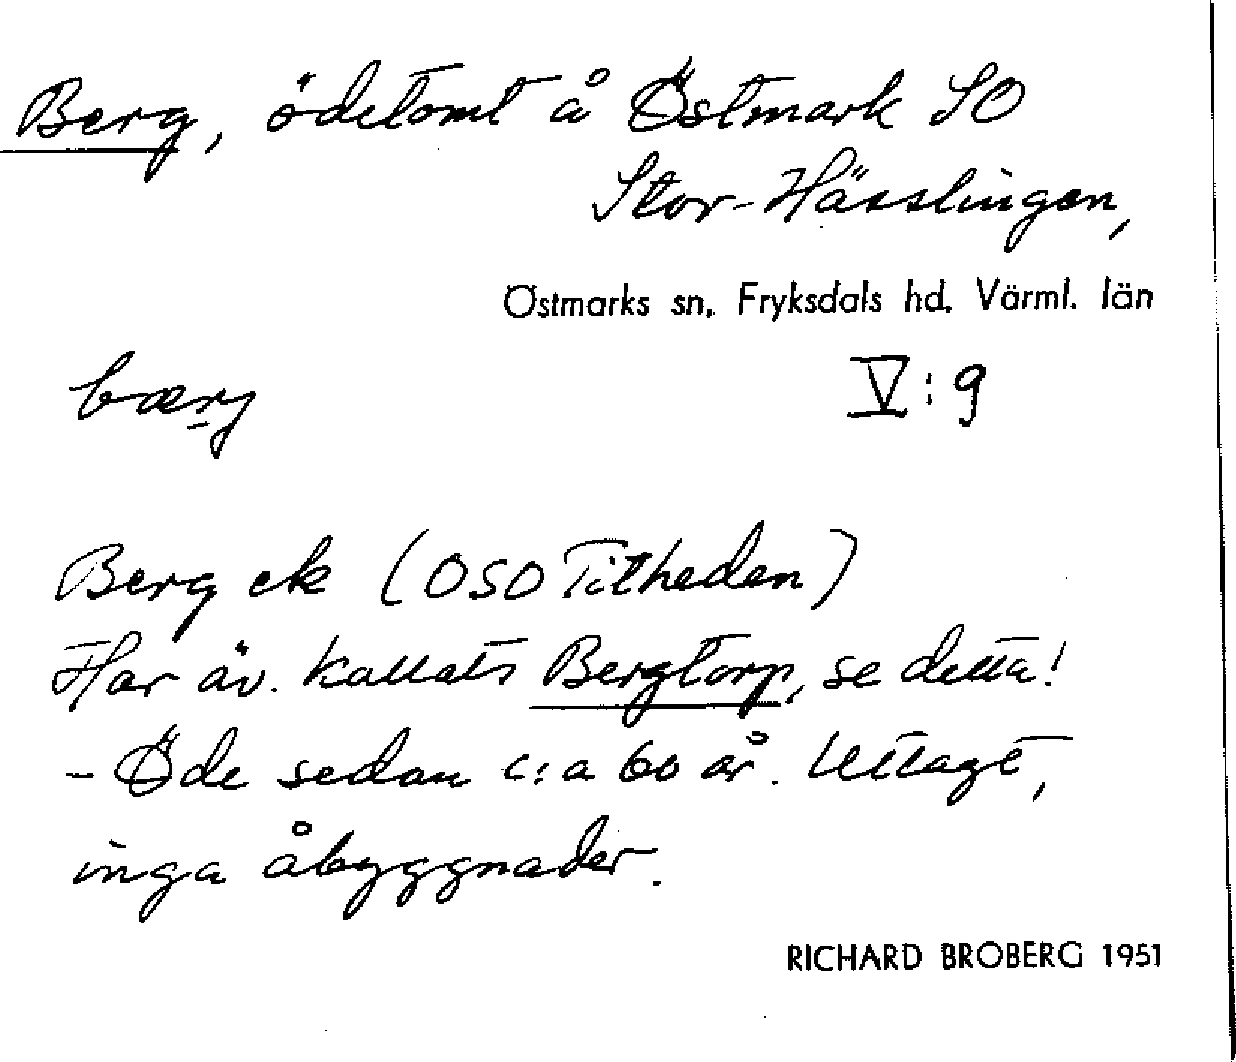 Berg, ödetomt å Östmark SO
Stor-Hässlingen,
Östmarks sn, Fryksdals hd. Värml. län
bærj
V:9
Berg ek (OSO Titheden)
Har äv. kallats Bergtorp, se detta!
- Öde sedan c:a 60 år. Uttaget,
inga åbyggnader.
RICHARD BROBERG 1951